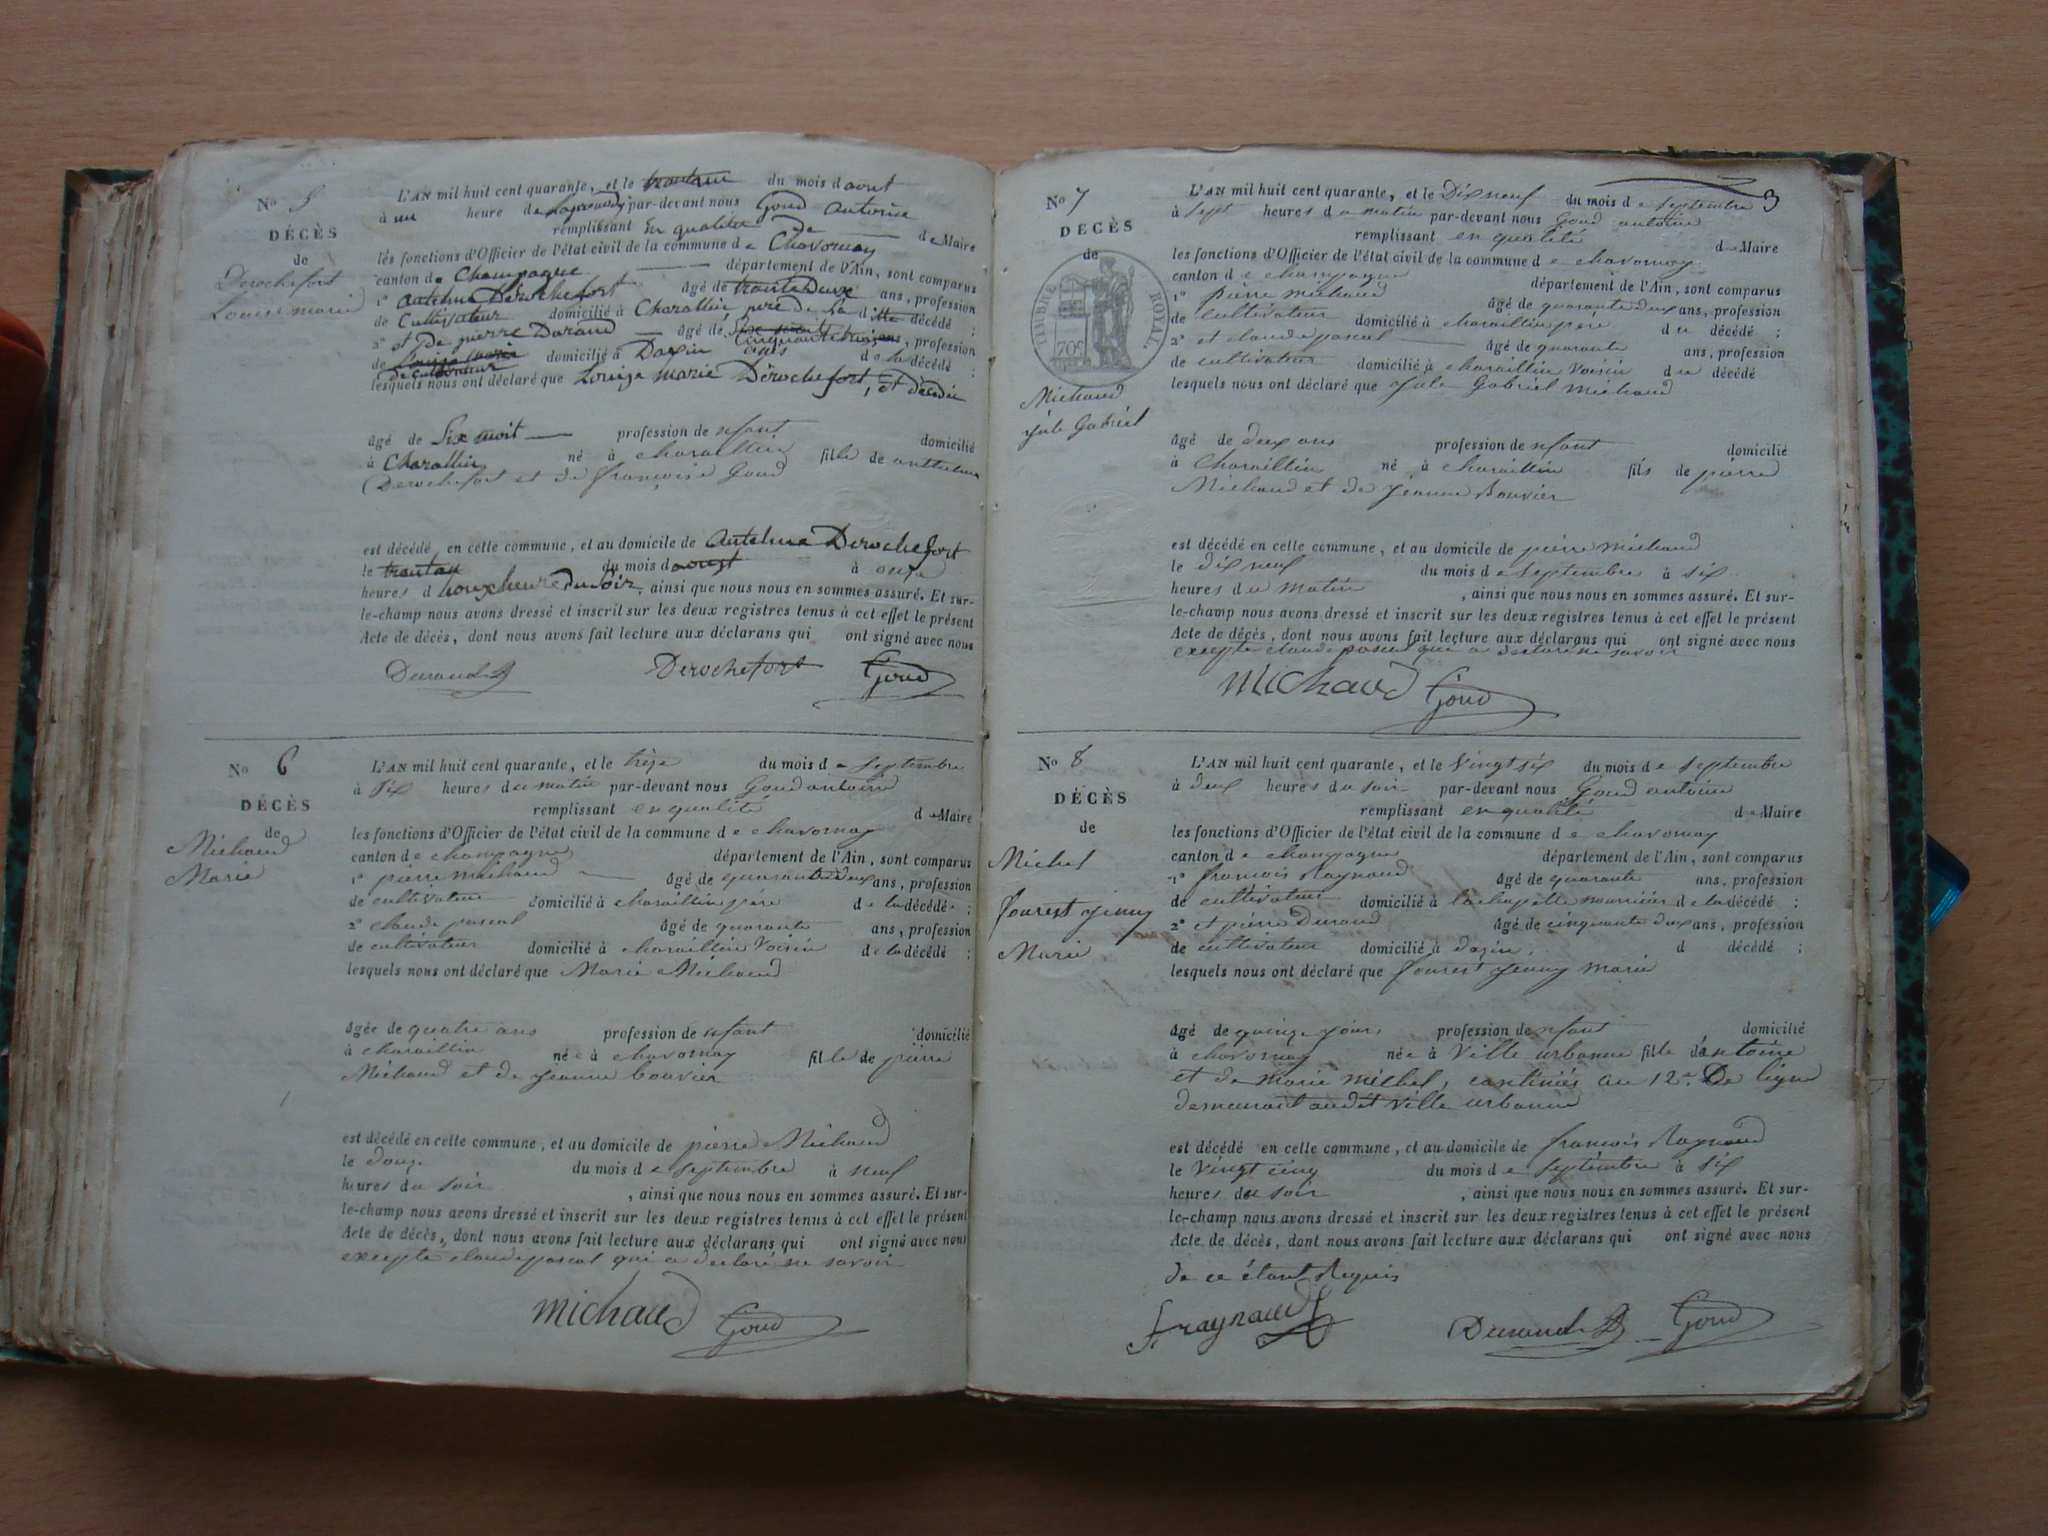 No 5
DÉCÈS
de
Derochefort
Louise marie
L'AN mil huit cent quarante, et le du mois d aout
à un heure de par-devant nous Goud Antoine
remplissant En qualité de d e Maire
les fonctions d'Officier de l'état civil de la commune d e Chavornay
canton de Champagne département de l'Ain, sont comparus
1° Antelme Derochefort âgé de trente Deux ans, profession
de Cultivateur domicilié à Charaillin père de La décédé ;
2° et De pierre Durand âgé de ans, profession
de domicilié à Dazin d e la décédé ;
lesquels nous ont déclaré que Louize Marie Dérochefort, est décédée
âgé de Six moit profession de nfant domicilié
à Charaillin né à charaillin fille de anthelme
Derochefort et de françoise Goud
est décédé en cette commune, et au domicile de Antelme Derochefort
le du mois d aoust à onze
heures d du soir, ainsi que nous nous en sommes assuré. Et sur-
le-champ nous avons dressé et inscrit sur les deux registres tenus à cet effet le présent
Acte de décès, dont nous avons fait lecture aux déclarans qui ont signé avec nous
Durand Derochefort Goud
No 6
DÉCÈS
de
Michaud
Marie
L'AN mil huit cent quarante, et le trèze du mois d e septembre
à six heures du matin par-devant nous Goud antoine
remplissant en qualité d e Maire
les fonctions d'Officier de l'état civil de la commune d e chavornay
canton d e champagne département de l'Ain, sont comparus
1° pierre michaud âgé de quarante deux ans, profession
de cultivateur domicilié à charaillin père d e la décédé e ;
2° claude pascal âgé de quarante ans, profession
de cultivateur domicilié à charaillin Voisin d e la décédé ;
lesquels nous ont déclaré que Marie Michaud
âgée de quatre ans profession de nfant domicilié
à charaillin né e à chavornay fille de pierre
Michaud et de jeanne bouvier
est décédé en cette commune, et au domicile de pierre Michaud
le douze du mois d e septembre à neuf
heures du soir, ainsi que nous nous en sommes assuré. Et sur-
le-champ nous avons dressé et inscrit sur les deux registres tenus à cet effet le présent
Acte de décès, dont nous avons fait lecture aux déclarans qui ont signé avec nous
excepte claude pascal qui a déclaré ne savoir
michaud Goud
3
No 7
DÉCÈS
de
TIMBRE ROYAL
70c
Michaud
jule Gabriel
L'AN mil huit cent quarante, et le Dix neuf du mois d e septembre
à sept heures du matin par-devant nous Goud antoine
remplissant en qualité d e Maire
les fonctions d'Officier de l'état civil de la commune d e chavornay
canton d e champagne département de l'Ain, sont comparus
1° pierre michaud âgé de quarante deux ans, profession
de cultivateur domicilié à charaillin père d u décédé ;
2° et claude pascal âgé de quarante ans, profession
de cultivateur domicilié à charaillin voisin d u décédé
lesquels nous ont déclaré que jule Gabriel michaud
âgé de deux ans profession de nfant domicilié
à Charaillin né à charaillin fils de pierre
Michaud et de jeanne Bouvier
est décédé en cette commune, et au domicile de pierre michaud
le dix neuf du mois d e septembre à six
heures du matin, ainsi que nous nous en sommes assuré. Et sur-
le-champ nous avons dressé et inscrit sur les deux registres tenus à cet effet le présent
Acte de décès, dont nous avons fait lecture aux déclarans qui ont signé avec nous
excepte claude pascal qui a declaré ne savoir
Michaud Goud
No 8
DÉCÈS
de
Michel
fourest jenny
Marie
L'AN mil huit cent quarante, et le Vingt six du mois d e septembre
à deux heures du soir par-devant nous Goud antoine
remplissant en qualité d e Maire
les fonctions d'Officier de l'état civil de la commune d e chavornay
canton d e champagne département de l'Ain, sont comparus
1° francois Raynaud âgé de quarante ans, profession
de cultivateur domicilié à la chapelle d e la décédé ;
2° et pierre Durand âgé de cinquante deux ans, profession
de cultivateur domicilié à dazin, d décédé ;
lesquels nous ont déclaré que fourest jenny marie
âgé de quinze jours profession de nfant domicilié
à chavornay né e à Ville urbanne fille d'antoine
et de marie michel, cantiniés au 12e De ligne
demeurant audit Ville urbanne
est décédé en cette commune, et au domicile de francois Raynaud
le Vingt cinq du mois d e septembre à six
heures du soir, ainsi que nous nous en sommes assuré. Et sur-
le-champ nous avons dressé et inscrit sur les deux registres tenus à cet effet le présent
Acte de décès, dont nous avons fait lecture aux déclarans qui ont signé avec nous
de ce étant Requis
f raynaud Durand Goud